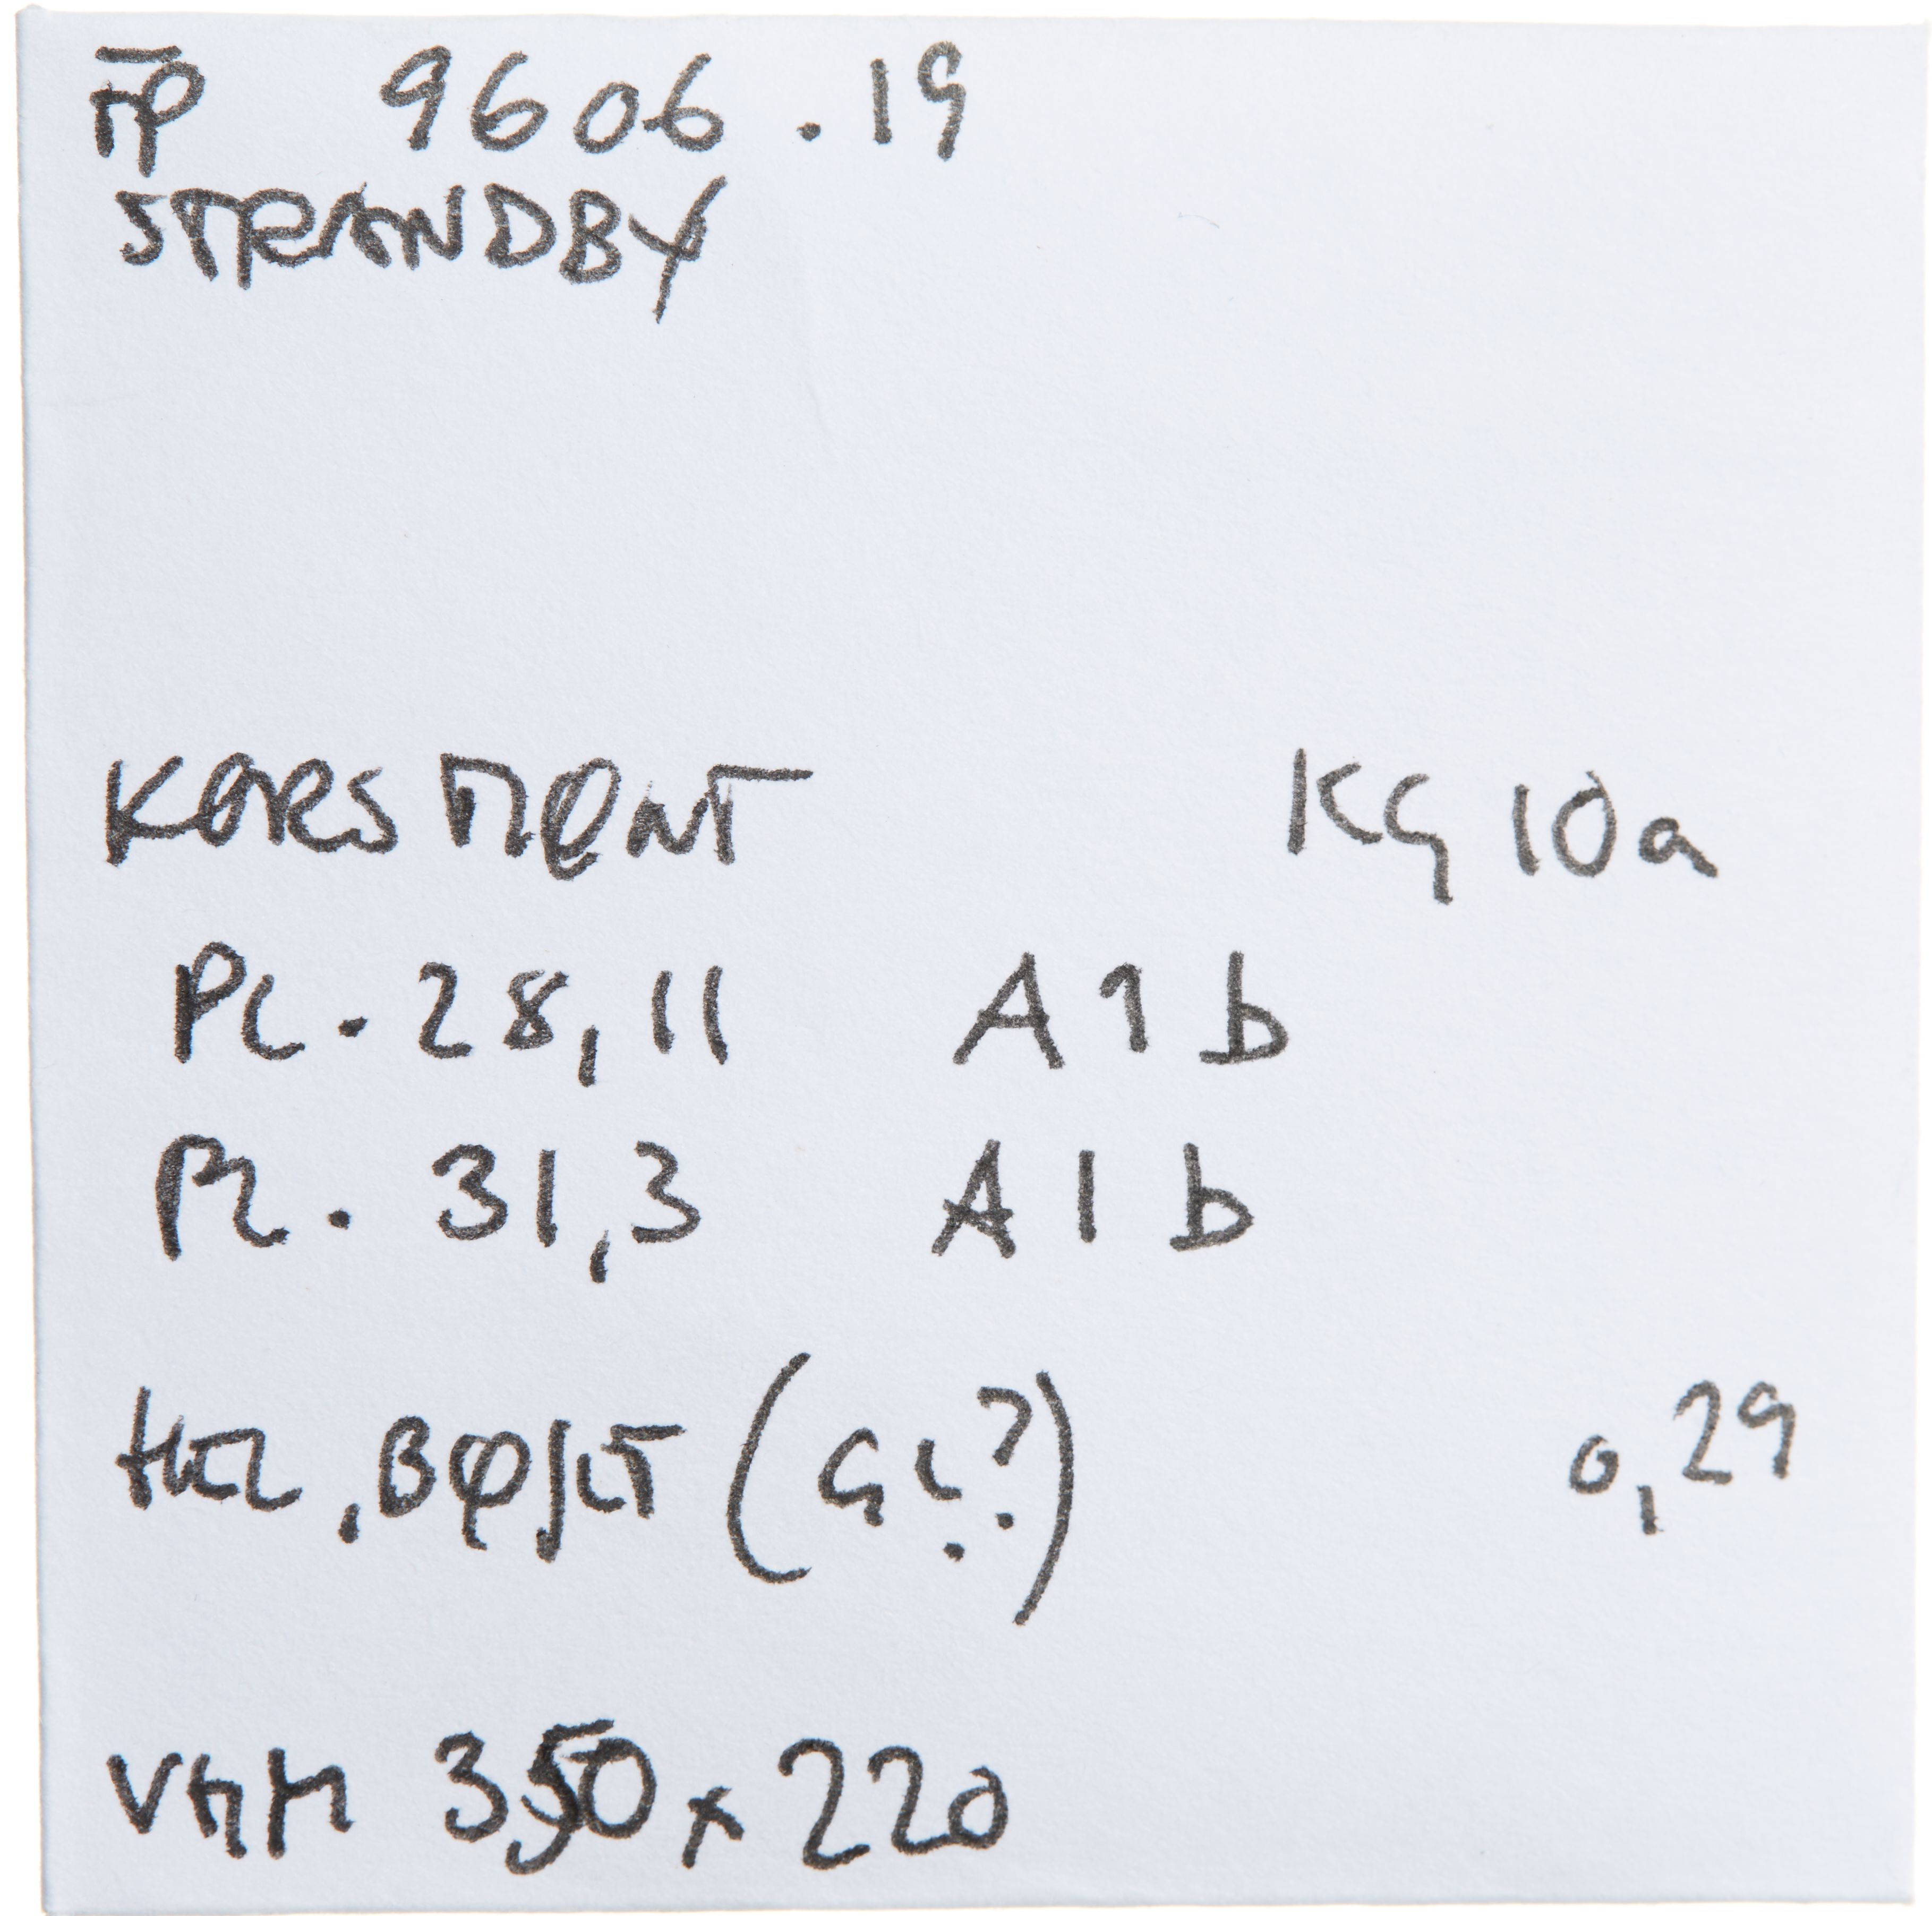 FP 9606.19
STRANDBY
KORSMØNT KG 10a
PL. 28,11 A 1 b
PL. 31,3 A 1 b
HEL, BØJET (GL.?) 0,29
350 x 220